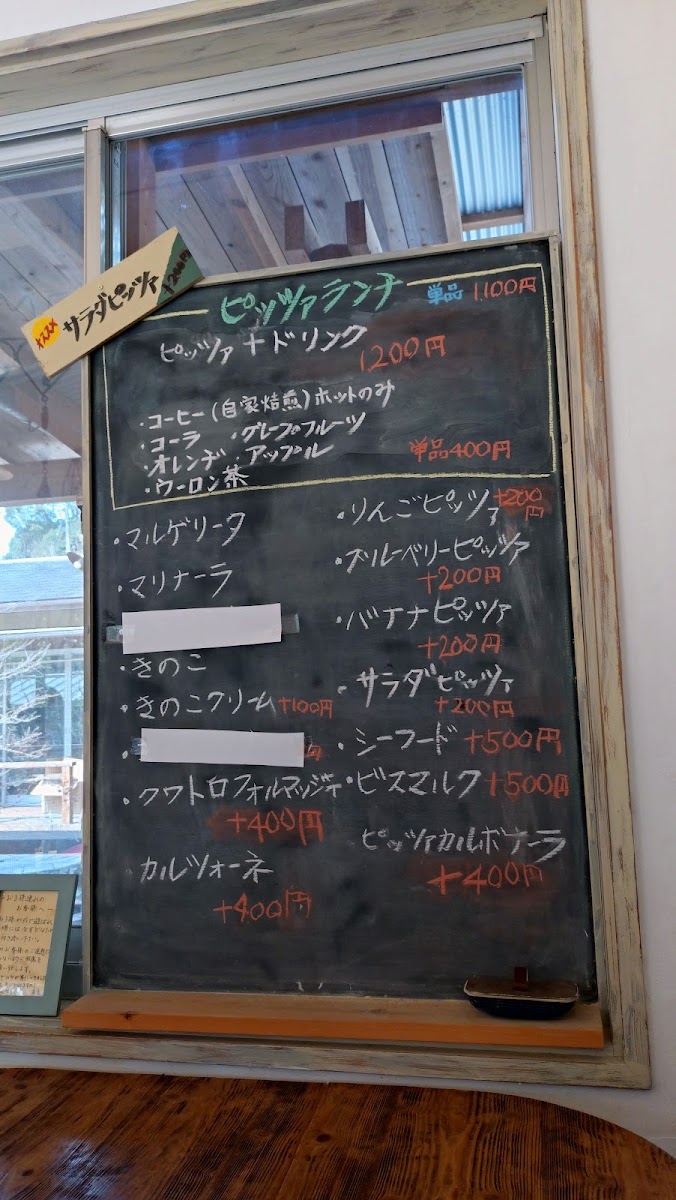 オススメ
サラダピッツァ
ピッツァランチ 単品 1,100円
ピッツァ + ドリンク 1200円
・コーヒー (自家焙煎) ホットのみ
・コーラ ・グレープフルーツ
・オレンヂ ・アップル
・ウーロン茶
単品400円
・マルゲリータ
・マリナーラ
・きのこ
・きのこクリーム +100円
・クワトロフォルマッジャ
+400円
カルツォーネ
+400円
・りんごピッツァ +200円
・ブルーベリーピッツァ
+200円
・バナナピッツァ
+200円
・サラダピッツァ
+200円
・シーフード +500円
・ビスマルク +500円
ピッツァカルボナーラ
+400円